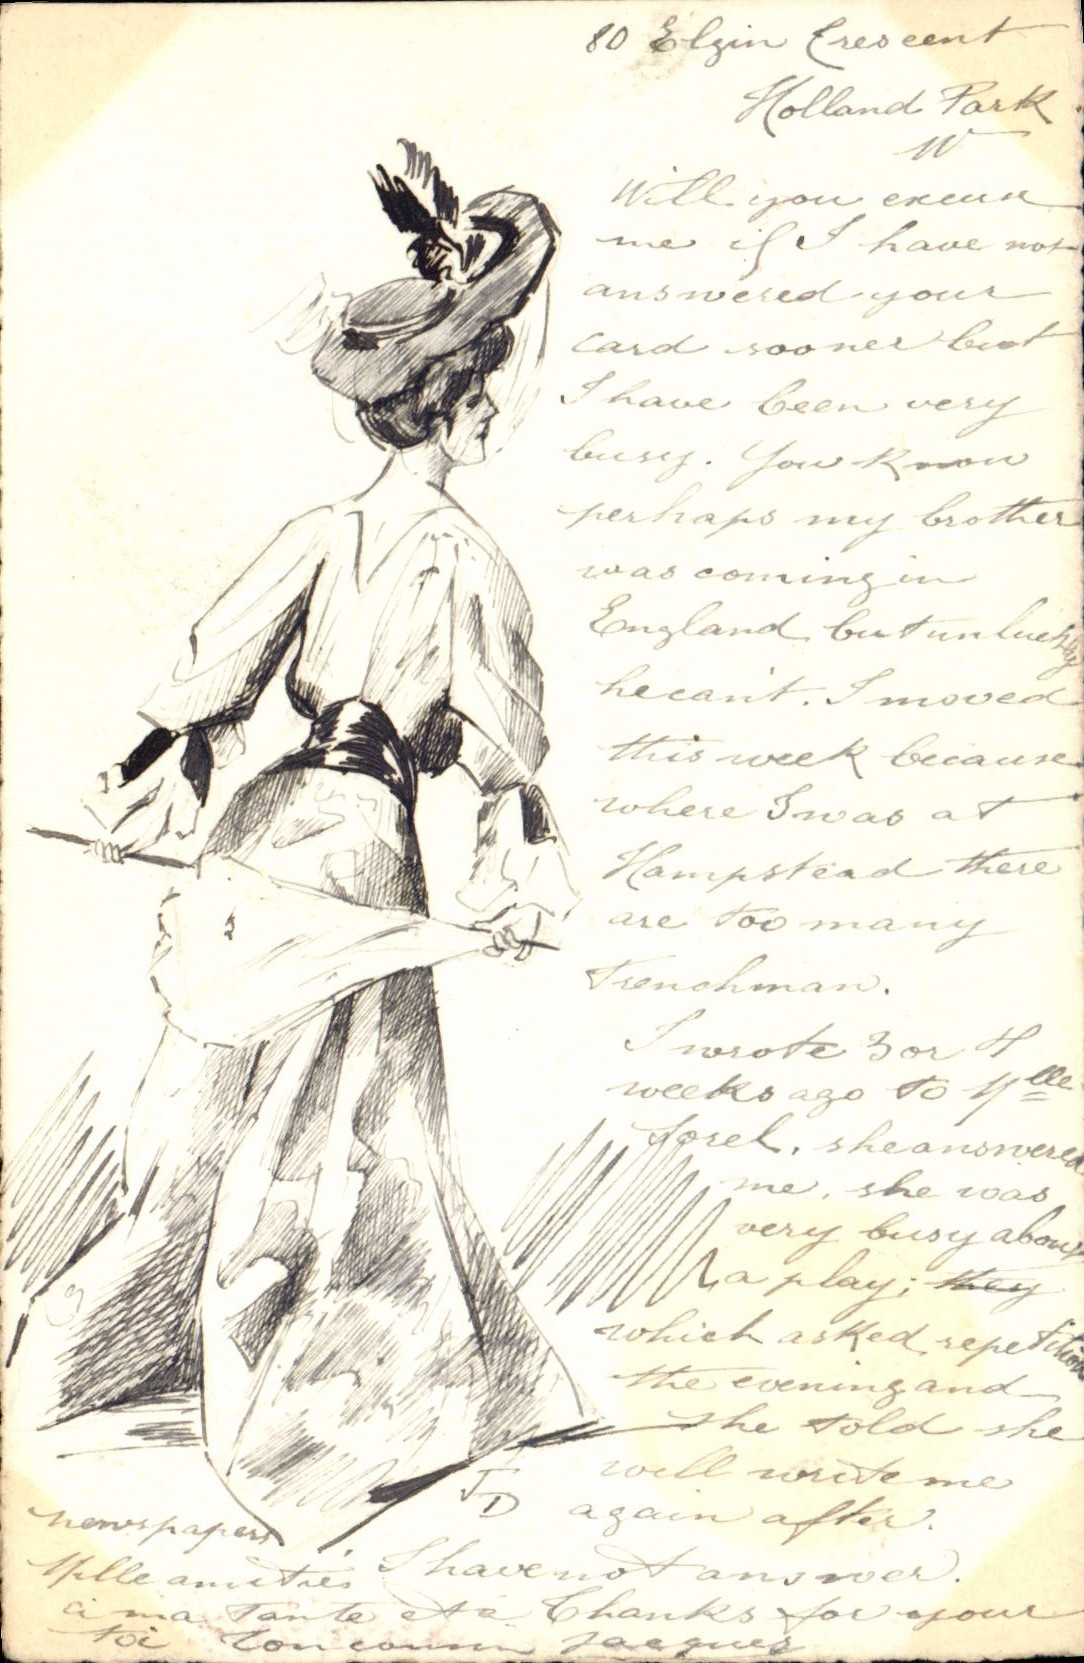 80 Elgin Crescent
Holland Park
W
Will you excuse
me if I have not
answered your
card sooner but
I have been very
busy. You know
perhaps my brother
was coming in
England but unlucky
he can't. I moved
this week because
where I was at
Hampstead there
are too many
Frenchman.
I wrote 3 or 4
weeks ago to Mlle
Sorel, she answered
me, she was
very busy about
a play; they
which asked repetition
the evening and
she told she
will write me
again after.
JD
I have not answer.
Thanks for your
newspapers
Mille amitiés
à ma Tante et à
toi ton cousin Jacques